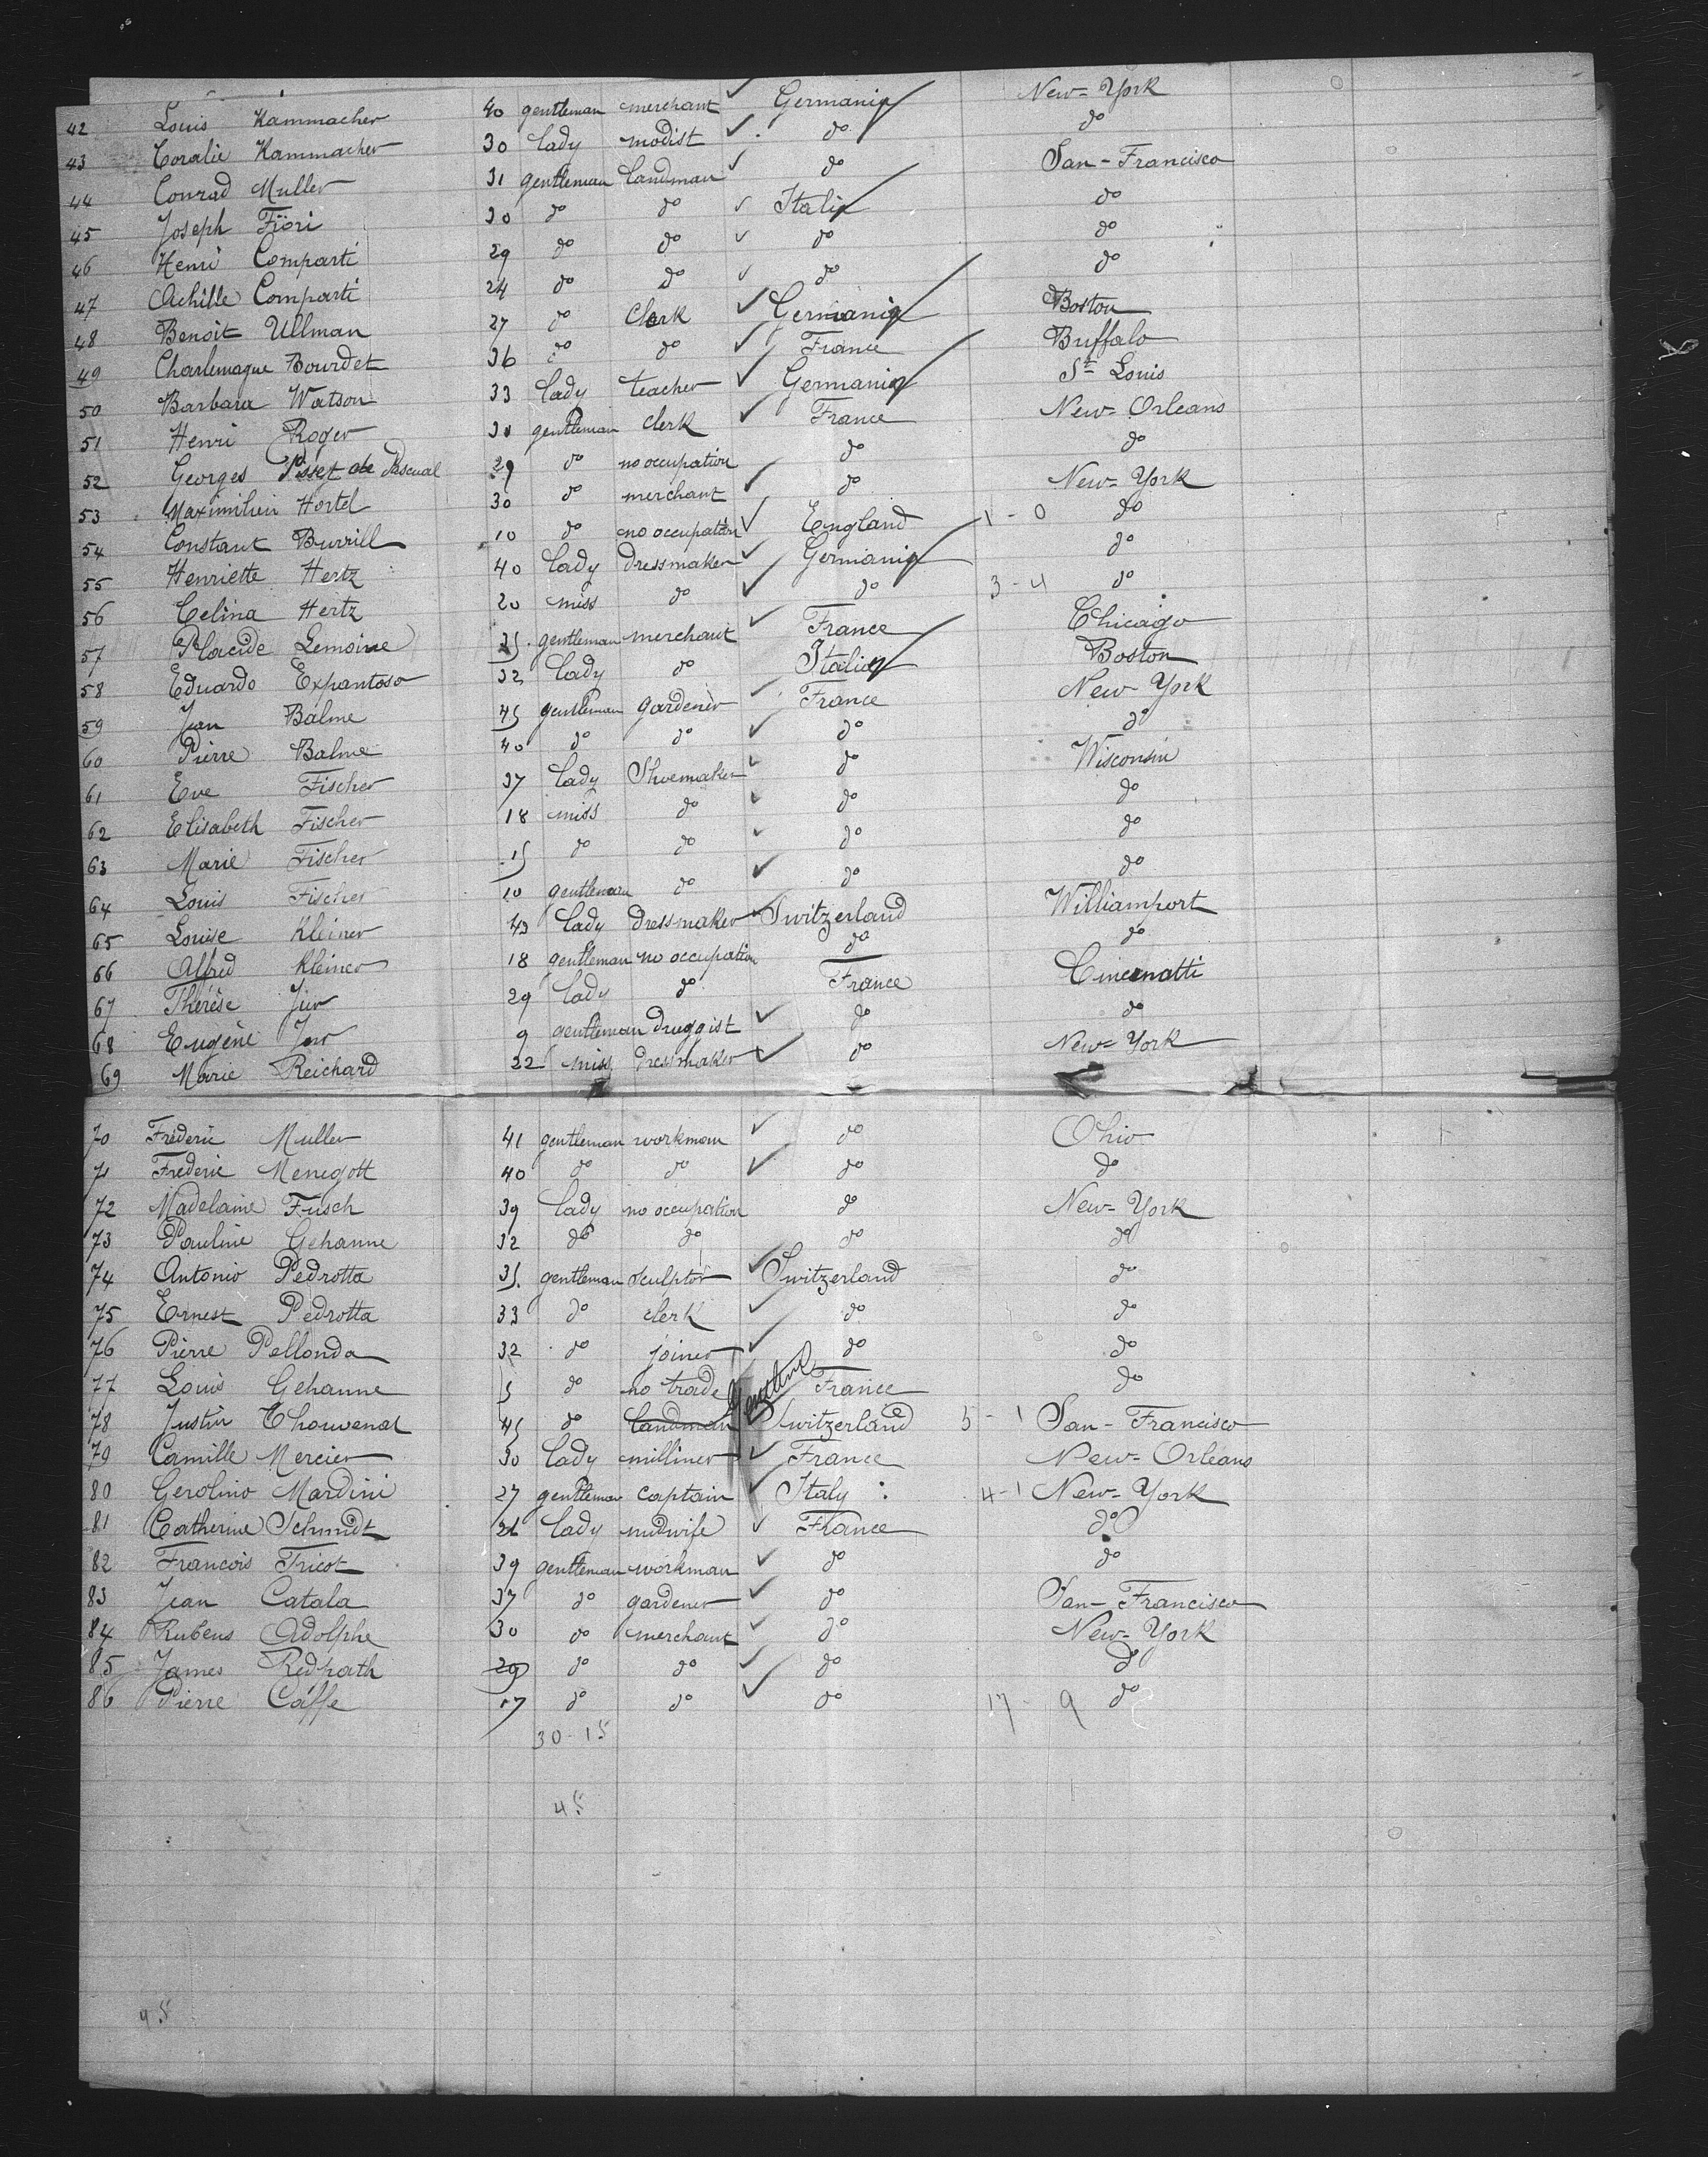 42 Louis Kammacher 40 gentleman merchant Germania New-York
43 Coralie Kammacher 30 lady modist do do
44 Conrad Muller 31 gentleman landman do San-Francisco
45 Joseph Fiori 30 do do Italia do
46 Henri Comparti 29 do do do do
47 Achille Comparti 24 do do do do
48 Benoit Ullman 27 do Clerk Germania Boston
49 Charlemagne Bourdet 36 do do France Buffalo
50 Barbara Watson 33 lady teacher Germania St Louis
51 Henri Roger 30 gentleman clerk France New-Orleans
52 Georges de Pascual 29 do no occupation do do
53 Maximilien Hortel 30 do merchant do New-York
54 Constant Burrill 10 do no occupation England 1-0 do
55 Henriette Hertz 40 lady dressmaker Germania do
56 Celina Hertz 20 miss do do 3-4 do
57 Placide Lemoine 35 gentleman merchant France Chicago
58 Eduardo Expantoso 32 lady do Italia Boston
59 Jean Balme 45 gentleman gardener France New-York
60 Pierre Balme 40 do do do do
61 Eve Fischer 37 lady Shoemaker do Wisconsin
62 Elisabeth Fischer 18 miss do do do
63 Marie Fischer 15 do do do do
64 Louis Fischer 10 gentleman do do do
65 Louise Kleiner 43 lady dressmaker Switzerland Williamport
66 Alfred Kleiner 18 gentleman no occupation do do
67 Thérèse 29 lady do France Cincinatti
68 Eugène 9 gentleman druggist do do
69 Marie Reichard 22 miss dressmaker do New-York
70 Fréderic Muller 41 gentleman workman do Ohio
71 Fréderic Menegott 40 do do do do
72 Madelaine Fusch 39 lady no occupation do New-York
73 Pauline Gehanne 32 do do do do
74 Antonio Pedrotta 35 gentleman sculptor Switzerland do
75 Ernest Pedrotta 33 do clerk do do
76 Pierre Pellonda 32 do joiner do do
77 Louis Gehanne 5 do no trade France do
78 Justin Thouvenot 45 do landman Switzerland 5-1 San-Francisco
79 Camille Mercier 30 lady milliner France New-Orleans
80 Gerolino Mardini 27 gentleman captain Italy 4-1 New-York
81 Catherine Schmidt lady midwife France do
82 Francois Tricot 39 gentleman workman do do
83 Jean Catala 37 do gardener do San-Francisco
84 Rubens Adolphe 30 do merchant do New-York
85 James Redpath 29 do do do do
86 Pierre Caffe 17 do do do 17-9 do
30-15
45
45